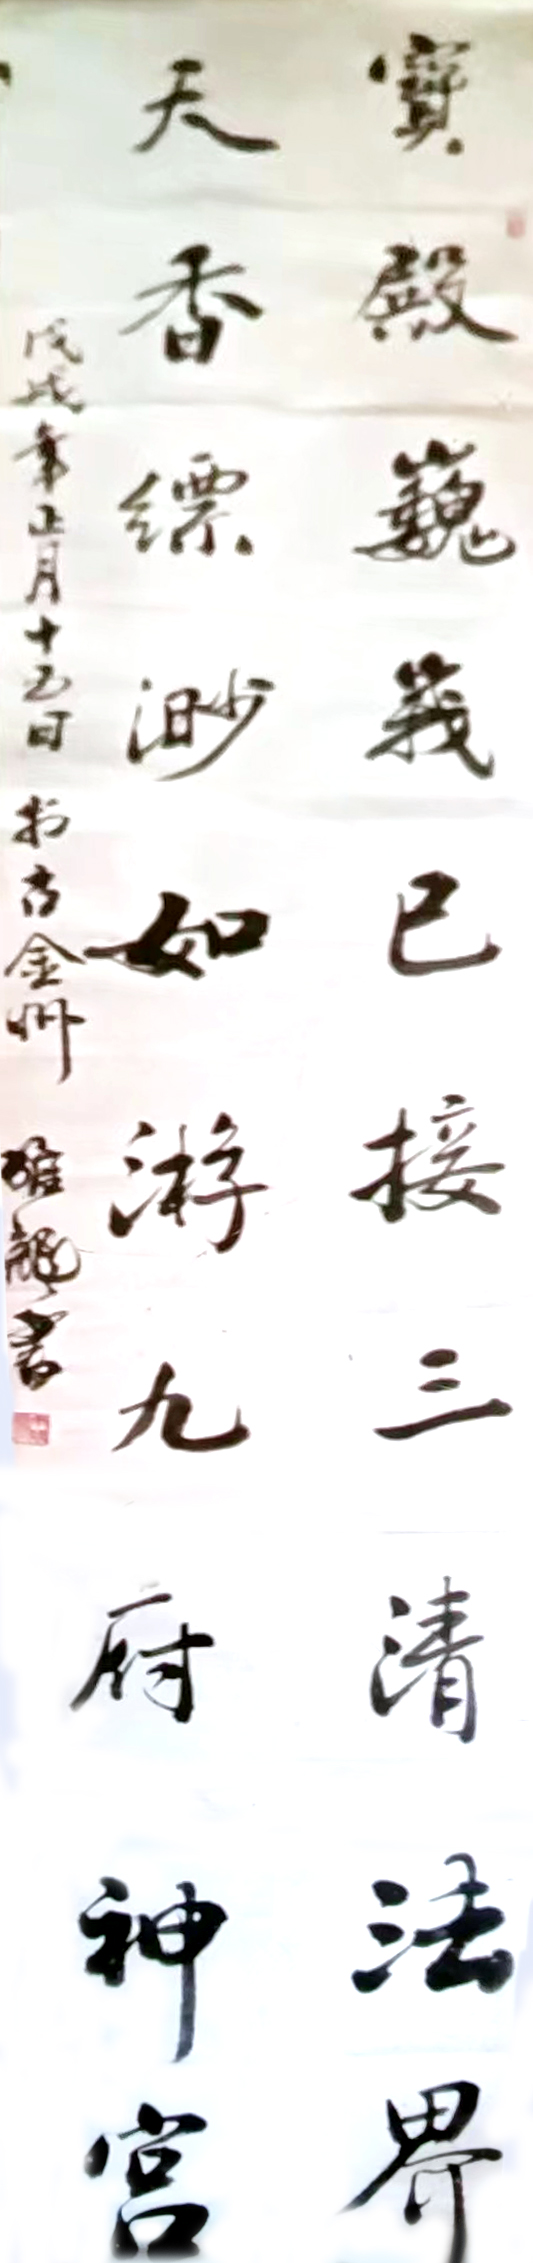 寶殿巍峩已接三清法界
天香縹渺如游九府神宮
戊戌年正月十五日於古金州雄龍書